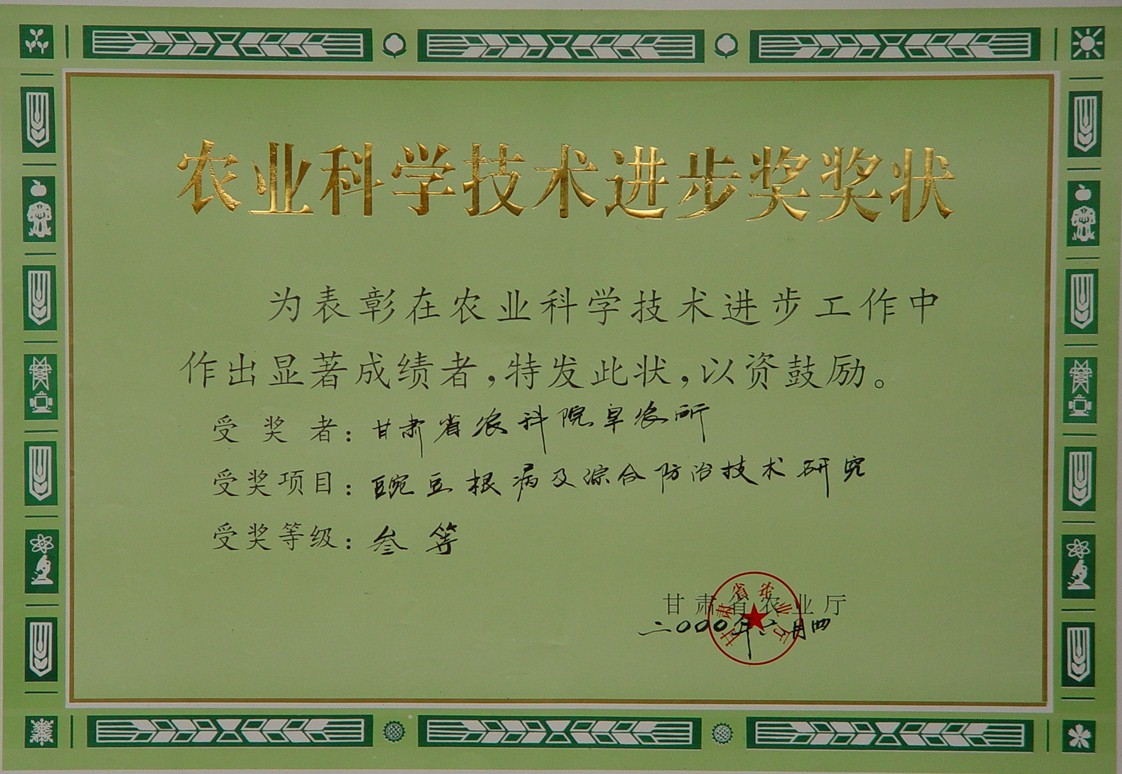 农业科学技术进步奖奖状
为表彰在农业科学技术进步工作中
作出显著成绩者,特发此状,以资鼓励。
受奖者:甘肃省农科院旱农所
受奖项目:豌豆根病及综合防治技术研究
受奖等级:叁等
甘肃省农业厅
二〇〇〇年六月四
甘肃省农业厅